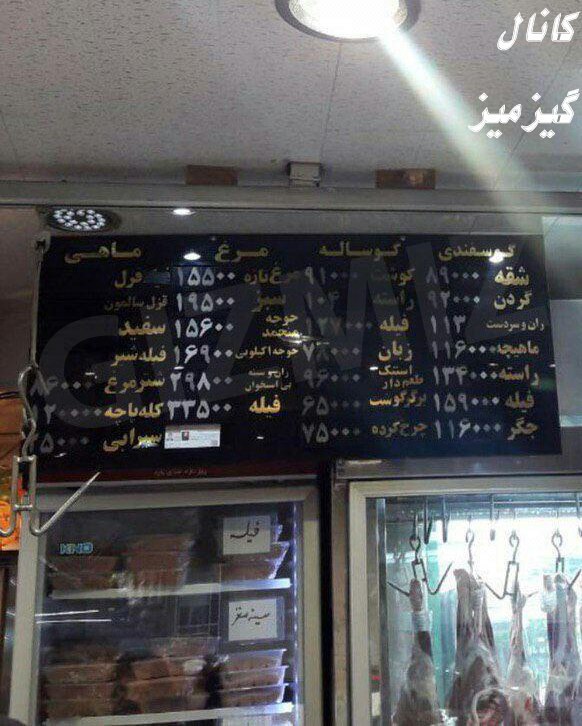 کانال
گیزمیز
گوسفندی
شقه ۸۹۰۰۰
گردن ۹۲۰۰۰
ران و سردست ۱۱۳
ماهیچه ۱۱۶۰۰۰
راسته ۱۳۴۰۰۰
فیله ۱۵۹۰۰۰
جگر ۱۱۶۰۰۰
گوساله
گوشت ۹۱۰۰۰
راسته ۱۰۴
فیله ۱۲۷۰۰۰
زبان ۷۸۰۰۰
استیک طعم دار ۹۶۰۰۰
برگر گوشت ۶۵۰۰۰
چرخ کرده ۷۵۰۰۰
مرغ
مرغ تازه ۱۵۵۰۰
سبز ۱۹۵۰۰
جوجه منجمد ۱۵۶۰۰
جوجه ۱کیلویی ۱۶۹۰۰
بی استخوان ۲۹۸۰۰
فیله ۳۳۵۰۰
ماهی
قزل
قزل سالمون
سفید
فیله شیر
شترمرغ ۸۶۰۰۰
کله پاچه
سیرابی
GIZMIZ
KINO
فیله
سینه مغز